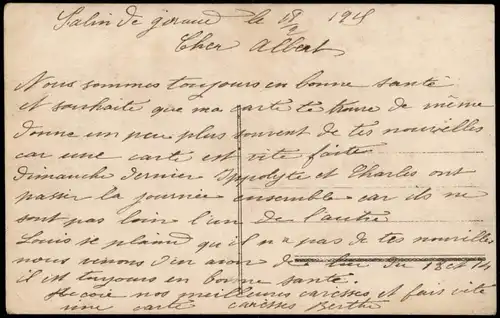 Salin de giraud le 18/9 1915
Cher Albert
Nous sommes toujours en bonne santé
et souhaite que ma carte te trouve de même
donne un peu plus souvent de tes nouvelles
car une carte est vite faite
Dimanche dernier Ippolyte et Charles ont
passer la journée ensemble car ils ne
sont pas loin l'un de l'autre
Louis se plaind qu'il n a pas de tes nouvelles
nous venons d'en avoir de lui du 13 et 14
il est toujours en bonne santé.
Recoie nos meilleures caresses et fais vite
une carte caresses Berthe